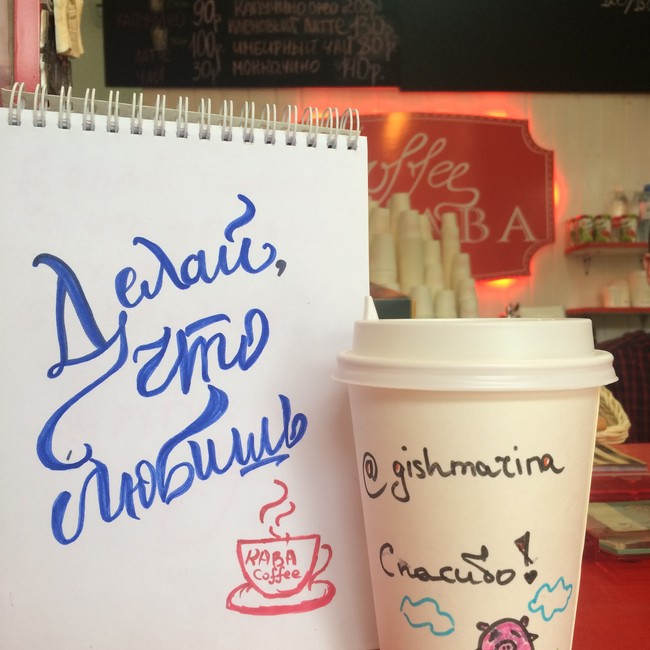 90р.
КЛЕНОВЫЙ ЛАТТЕ 130р.
100р. ИМБИРНЫЙ ЧАЙ 80р.
ЧАЙ 30р. МОККАЧИНО 140р.
Coffee
КАВА
Делай,
что
любишь
КАВА
Coffee
@gishmarina
Спасибо!